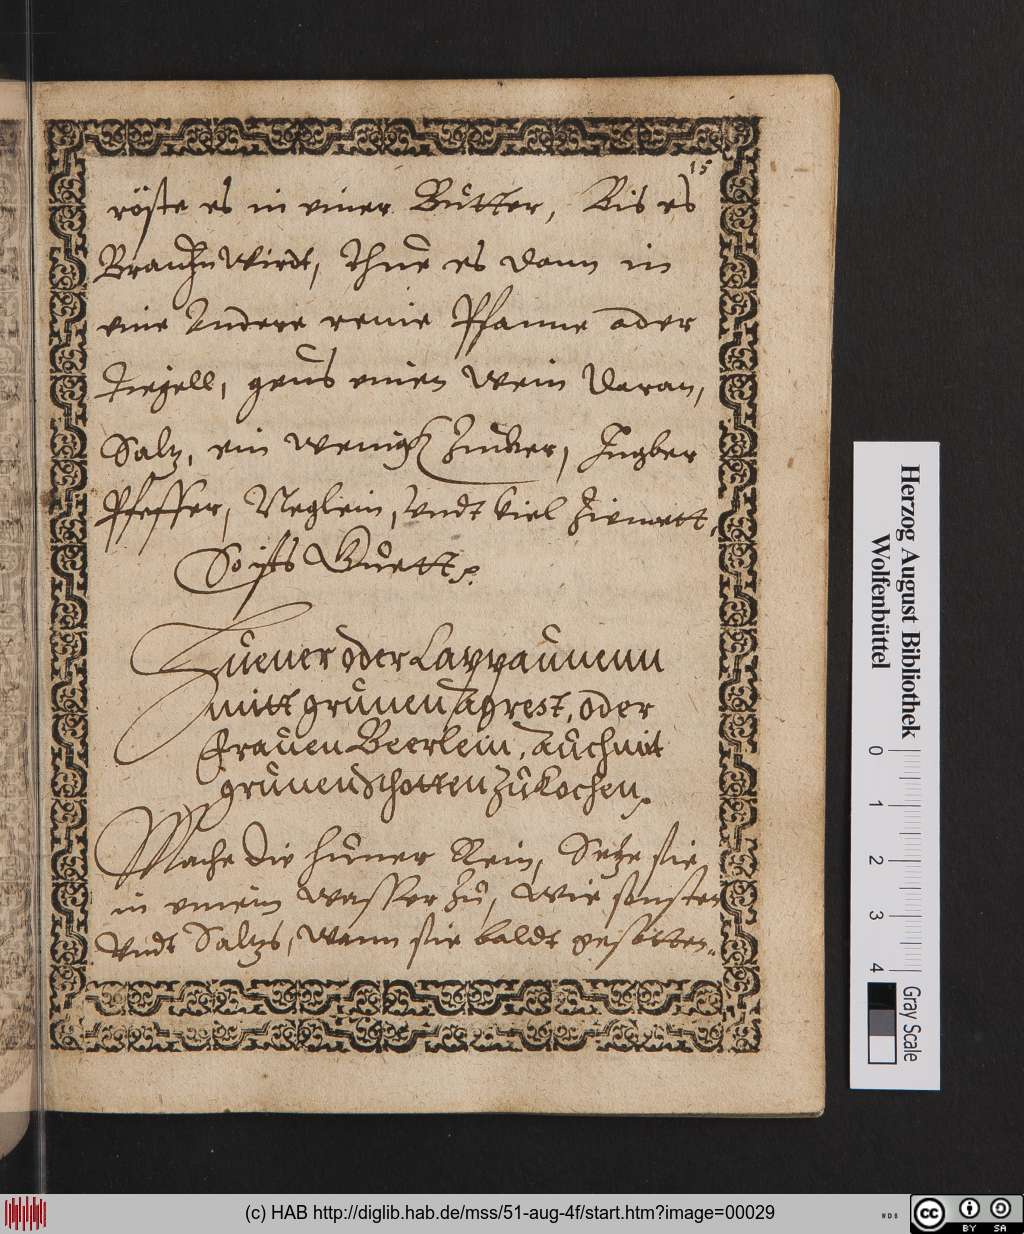 15
röste es in einer Butter, Bis es
Braun Wirdt, Thue es dann in
eine Andere reine Pfanne oder
Tiegell, geus einen Wein daran,
Saltz, ein wenigk Zucker, Ingber
Pfeffer, Neglein, Vndt viel Zimett,
So ists Guett
Huener oder Cappaunenn
mitt grunen Agrest, oder
Frauen Beerlein, Auch mit
grunen Schotten Zu Kochen
Mache die huner Rein, Setze sie
in einem Wasser zu, Wie sonsten
Vndt Saltzs, Wann sie baldt gesotten
Herzog August Bibliothek
Wolfenbüttel
0 1 2 3 4
Gray Scale
(c) HAB http://diglib.hab.de/mss/51-aug-4f/start.htm?image=00029
WDB
cc BY SA